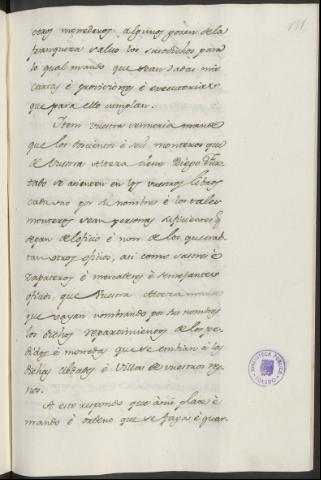 151
ceros monederos algunos gocen de la
franqueza salvo los susodichos para
lo qual mando que sean dadas mis
cartas è provisiones è executorias
que para ello cumplan.
Item vuestra señoria mande
que los docientos è seis monteros que
de Vuestra Alteza tiene Diego Fur-
tado se asienten en los vuestros libros
cada uno por su nombre è los tales
monteros sean personas suficientes q
sepan del oficio è non de los que usa-
tan otros oficios, asi como sastres è
zapateros è mercaderes è semejantes
oficios, que Vuestra Alteza mande
que vayan nombrados por sus nombres
los dichos repartimientos de los pe-
didos è monedas que se embian à las
dichas cibdades è Villas de vuestros rey-
nos.
A esto respondo que à mi place è
mando è ordeno que se faga è guar-
BIBLIOTECA PUBLICA
TOLEDO